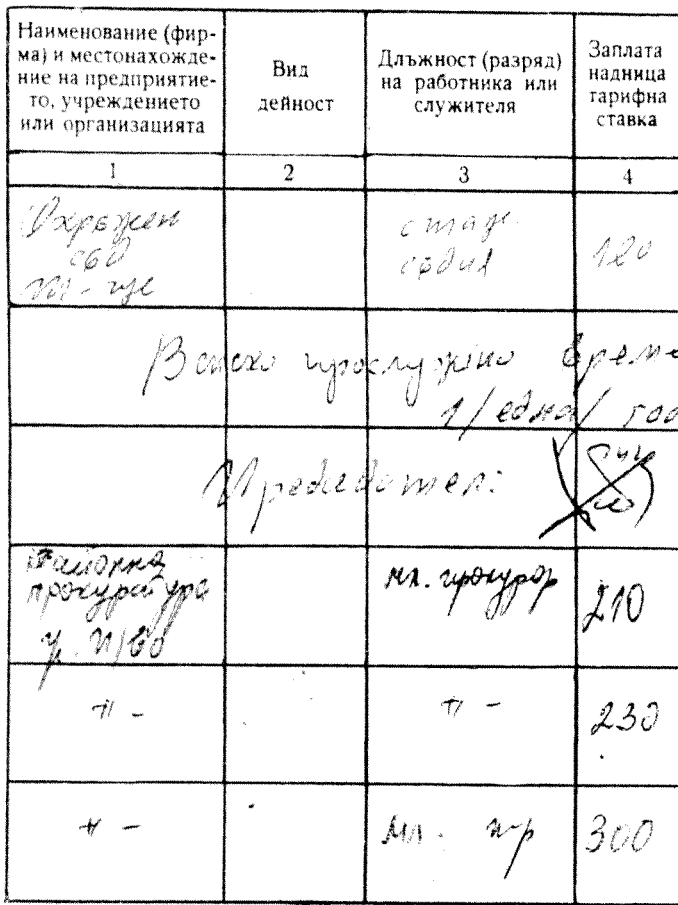 Наименование (фир-
ма) и местонахожде-
ние на предприятие-
то, учреждението
или организацията
Вид
дейност
Длъжност (разряд)
на работника или
служителя
Заплата
надница
тарифна
ставка
1
2
3
4
Окръжен
съд
стаж.
съдия
120
Всичко прослужено време
1/една/ год
Председател:
Районна
прокуратура
мл. прокурор
210
-"-
-"-
230
-"-
мл. пр-р
300